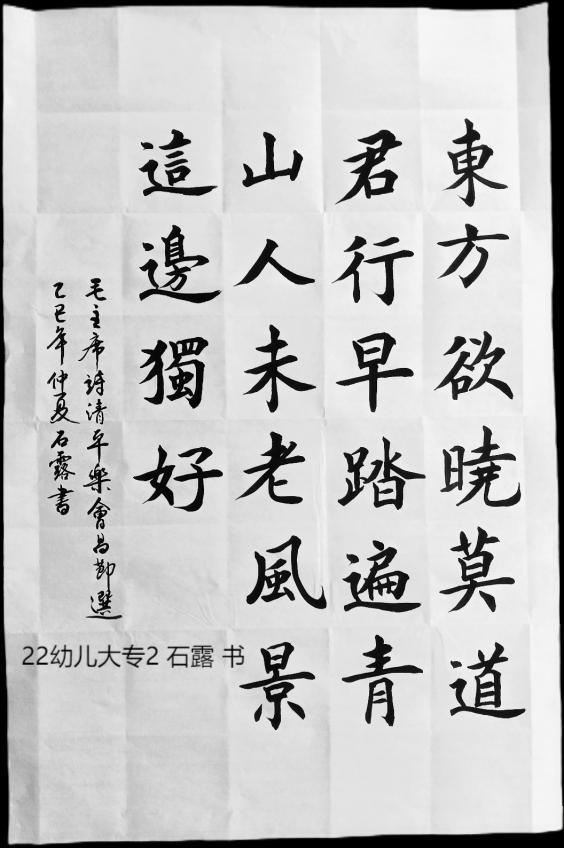 東方欲曉莫道
君行早踏遍青
山人未老風景
這邊獨好
毛主席詩清平樂會昌節選
乙巳年仲夏石露書
22幼儿大专2 石露 书